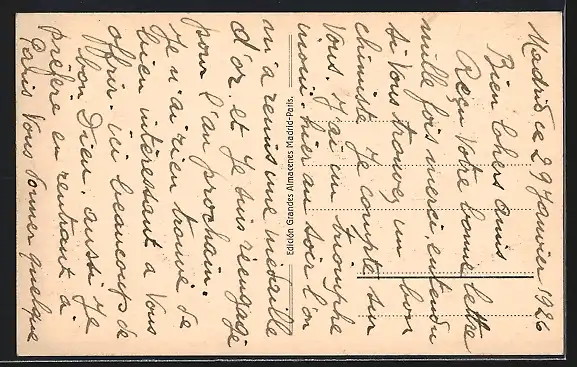 Madrid le 29 Janvier 1926
Bien Chers amis
Reçu Votre bonne lettre
mille fois merci entendu
si Vous trouvez un bon
chimiste Je compte sur
Vous. J'ai un triomphe
inouï. hier au soir l'on
m'a remis une medaille
d'or et Je suis réengagé
pour l'an prochain.
Je n'ai rien trouvé de
bien intéressant a Vous
offrir. ici beaucoup de
bon Dieu. aussi Je
préfère en rentrant a
Paris Vous donner quelque
Edición Grandes Almacenes Madrid-Paris.